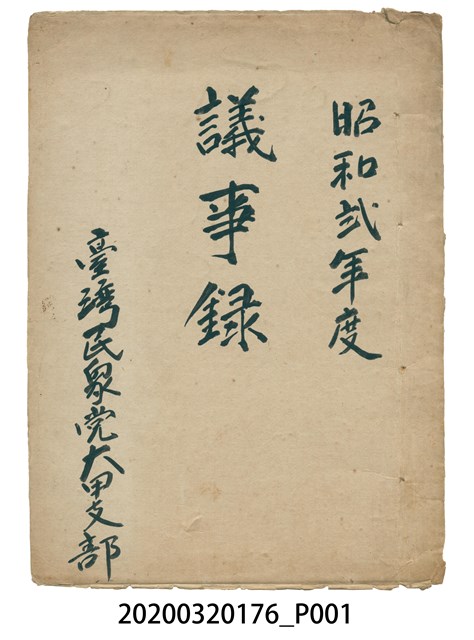 昭和弍年度
議事録
臺湾民衆党大甲支部
20200320176_P001